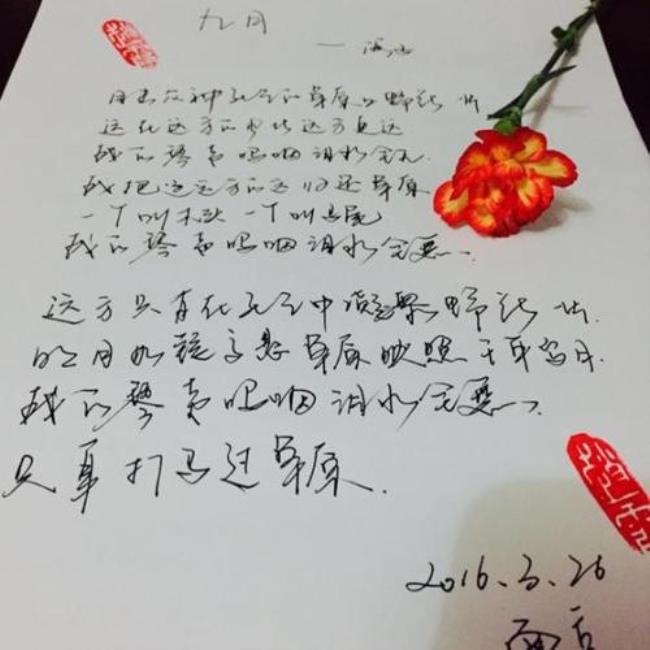 九月
—海子
目击众神死亡的草原上野花一片
远在远方的风比远方更远
我的琴声呜咽 泪水全无.
我把这远方的远归还草原
一个叫木头 一个叫马尾
我的琴声呜咽 泪水全无.
远方只有在死亡中凝聚野花一片.
明月如镜高悬草原映照千年岁月.
我的琴声呜咽 泪水全无.
只身打马过草原.
2016.3.26